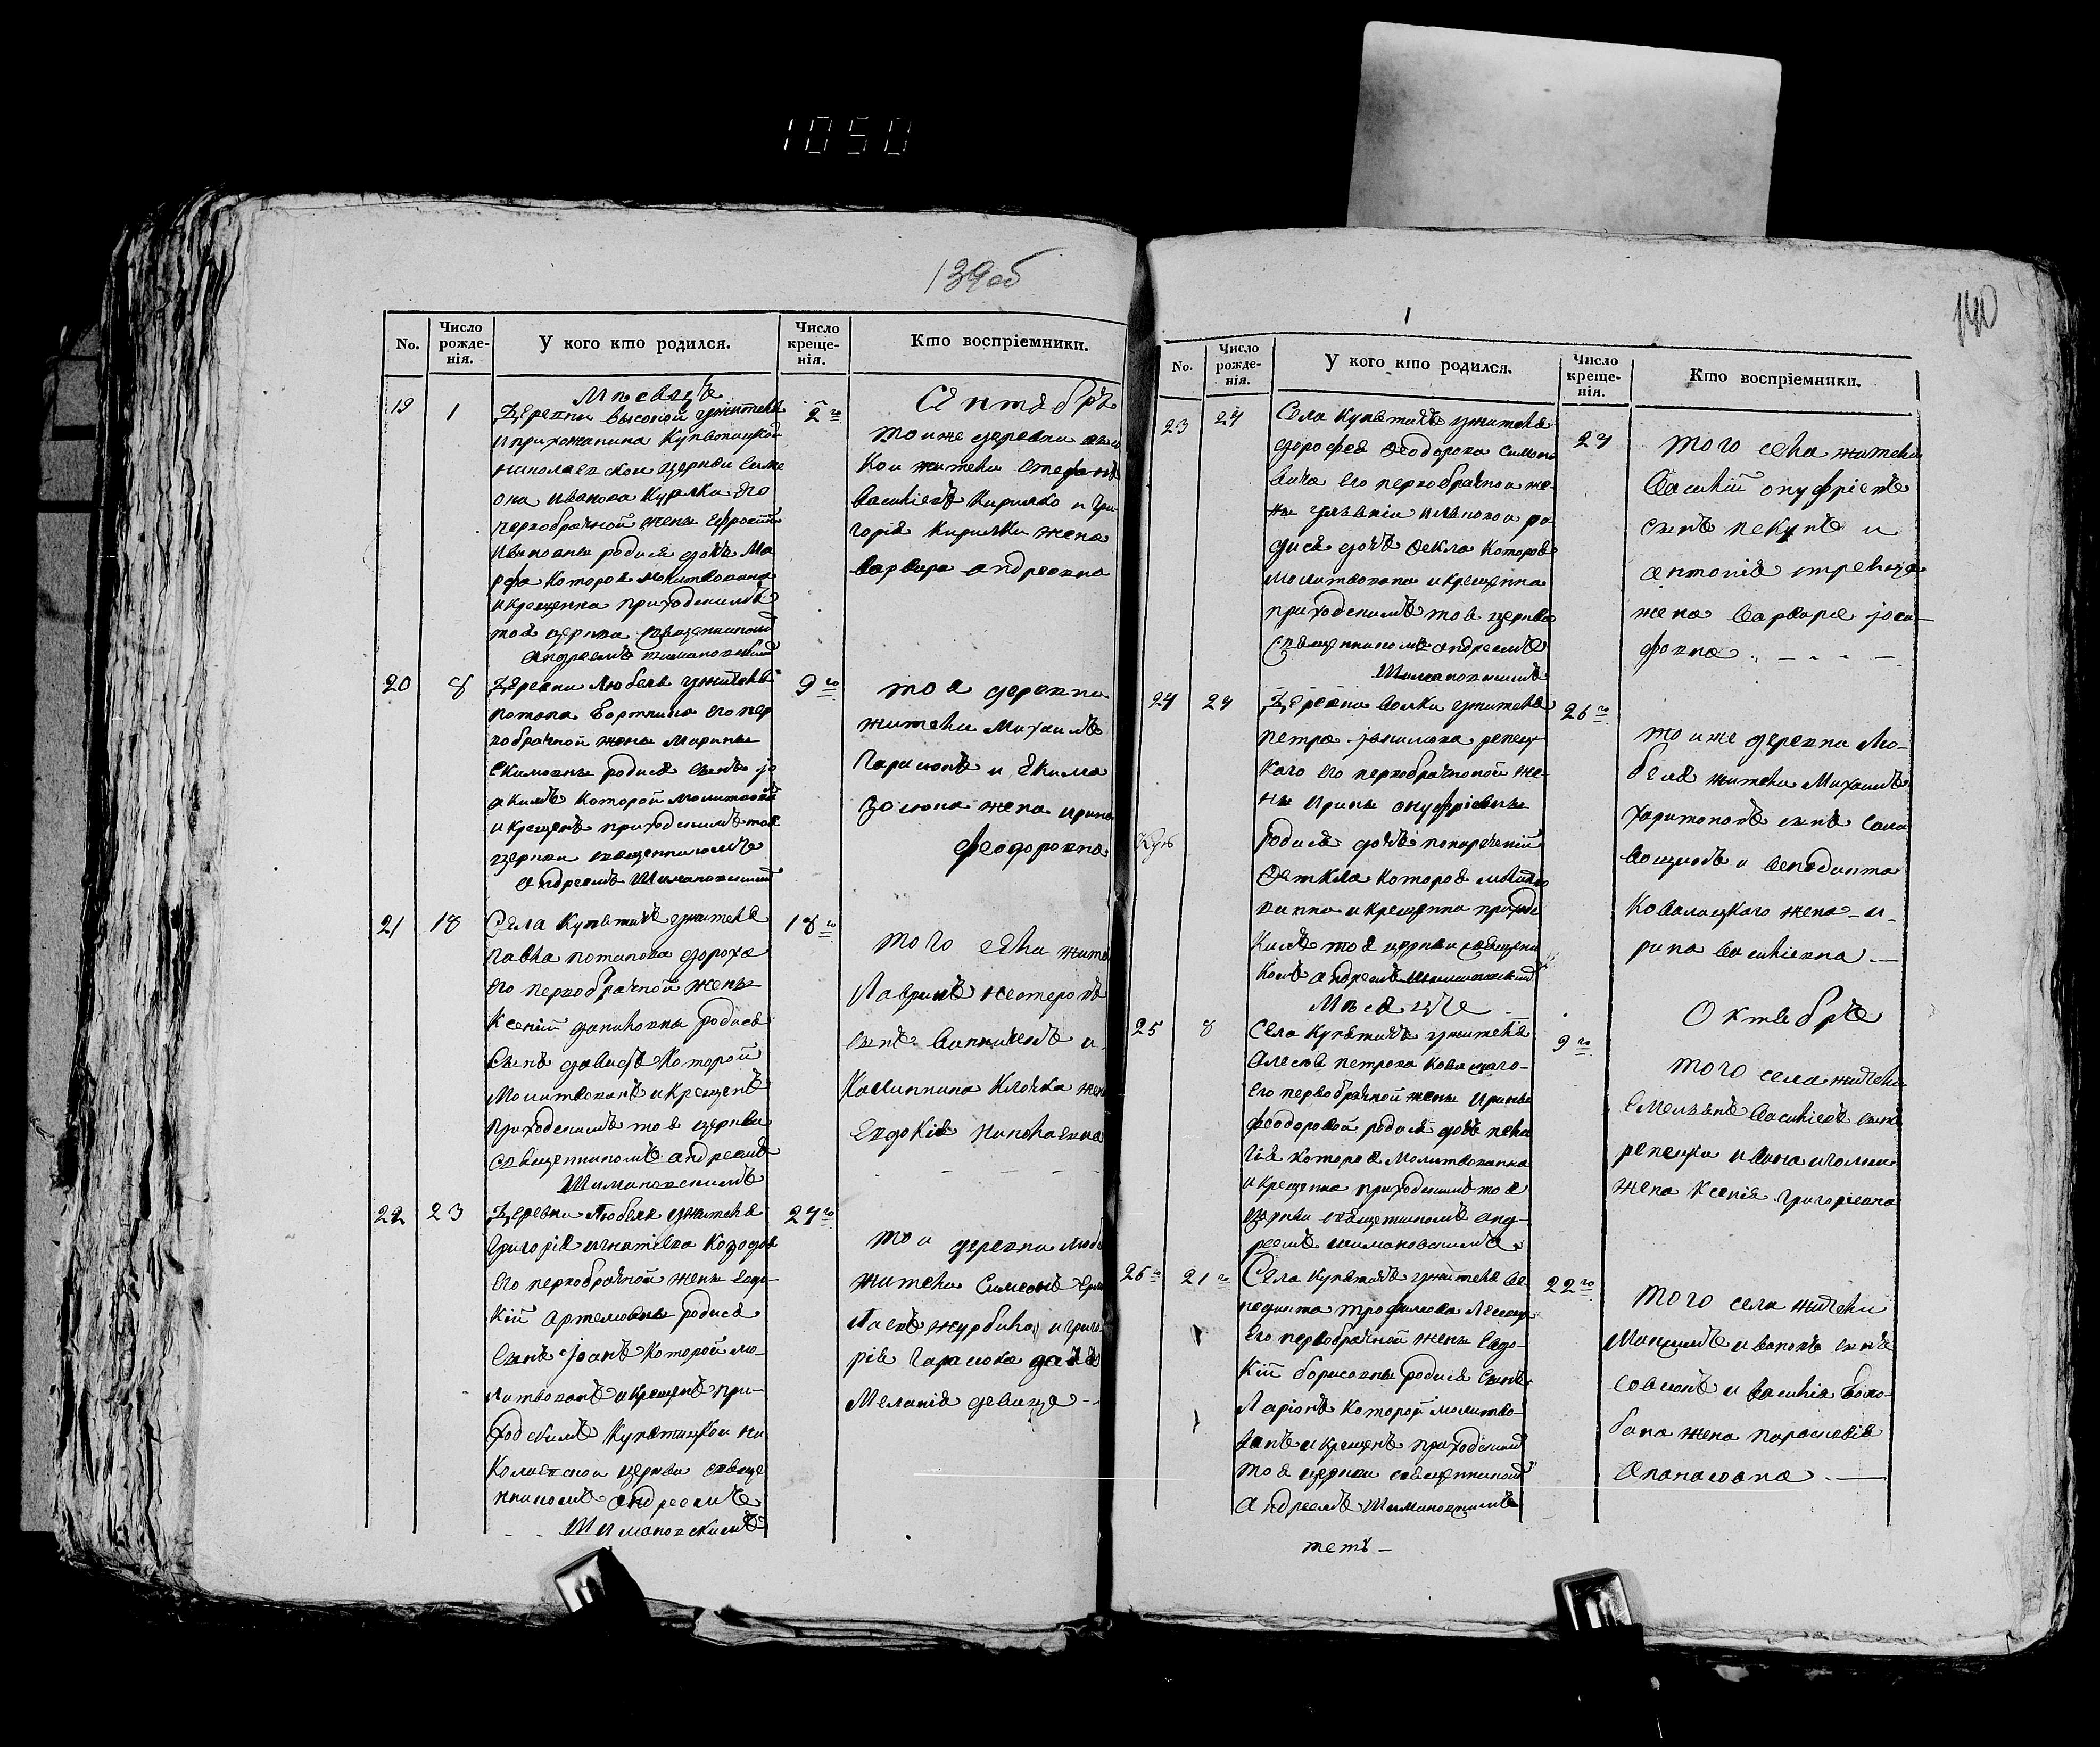 1050
139об
No.
Число рожде-нія.
У кого кто родился.
Число креще-нія.
Кто воспріемники.
Мѣсяцъ
Сентябрь
19
1
Деревни Высокой у жителя
и прихожанина Купятицкой
Николаевской церкви Симе
она Иванова Курлки его
первобрачной жены Ефросинïи
Ивановны родися дочь Ма
рфа которая молитвована
и крещенна приходскимъ
тоя церкви священникомъ
Андреемъ Шимановскимъ
2 го
тоиже деревни
кои жители Стефанъ
Василіевъ Кирилко и Гри
горія Кирилки жена
Варвара Андреевна
20
8
Деревни Любеля у жителя
Потапа Бортника его пер
вобрачной жены Марины
Екимовны родися сынъ Іо
акимъ которой молитвованъ
и крещенъ приходскимъ тоя
церкви священникомъ
Андреемъ Шимановскимъ
9 го
тоя деревни
жители Михаилъ
Гарасюкъ и Якима
Зосюка жена Ирина
Феодоровна
21
18
Села Купятичъ у жителя
Павла Потапова Дороха
его первобрачной жены
Ксеніи Даниловны родися
сынъ Давидъ которой
молитвованъ и крещенъ
приходскимъ тоя церкви
священникомъ Андреемъ
Шимановскимъ
18 го
того села жите
Лавринъ Нестеровъ
сынъ Винничекъ и
Калинника Клочка жена
Евдокія Николаевна
22
23
Деревни Любеля у жителя
Григорія Игнатіева Козодоя
его первобрачной жены Евдо-
кіи Артемовны родися
сынъ Іоанъ которой мо-
литвованъ и крещенъ при-
ходскимъ Купятицкои Ни
колаевскои церкви свяще
нникомъ Андреемъ
Шимановскимъ
24 го
тои деревни Любе
жители Симеонъ
Журбило и Григо-
рія Гарасюка дочь
Меланія девица
140
No.
Число рожде-нія.
У кого кто родился.
Число креще-нія.
Кто воспріемники.
23
24
Села Купятичъ у жителя
Дорофея Феодорова Симоно
вича его первобрачноя же-
ны Уліяніи Ильиновои ро-
дися дочь Фекла которая
молитвована и крещенна
приходскимъ тоя церкви
священникомъ Андреемъ
Шимановскимъ
24
того села жители
Василій Онуфріевъ
сынъ Пекунъ и
Антонія Стрельца
жена Варвара Іоси-
фовна
24
24
Деревни Волки у жителя
Петра Данилова Репец
кого его первобрачноной же-
ны Ирины Онуфріевны
родися дочь понареченïи
Фекла которая молитво
ванна и крещенна приходс
кимъ тоя церкви священи
комъ Андреемъ Шимановский
26 го
тоиже деревни Лю-
беля жители Михаилъ
Харитоновъ сынъ Сама
и Венедикта
Ковалицкого жена И-
рина Василіевна
Мѣсяцъ
Октябрь
25
8
Села Купятичъ у жителя
Алексѣя Петрова
его первобрачной жены Ирины
Феодоровой родися дочь Пела
гія которая молитвованна
и крещенна приходскимъ тоя
церкви священникомъ Анд-
реемъ Шимановскимъ
9 го
того села жители
Емеліянъ Василіевъ сынъ
Репецки и
жена Ксенія Григоріевна
26 го
21 го
Села Купятичъ у жителя Ве
недикта Трофимова
его первобрачной жены Евдо-
кіи Борисовны родися сынъ
Ларіонъ которой молитво-
ванъ и крещенъ приходскимъ
тоя церкви священникомъ
Андреемъ Шимановскимъ
22 го
того села жители
Максимъ Ивановъ сынъ
Совсюкъ и Василія Боло-
бана жена Парасковія
Апанасовна